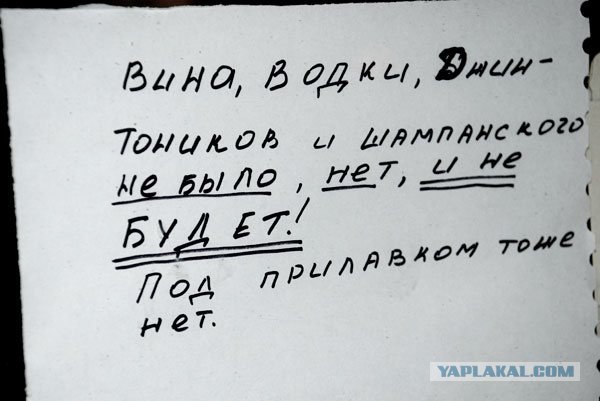 Вина, водки, Джин-
тоников и шампанского
не было, нет, и не
БУДЕТ!
Под прилавком тоже
нет.
YAPLAKAL.COM